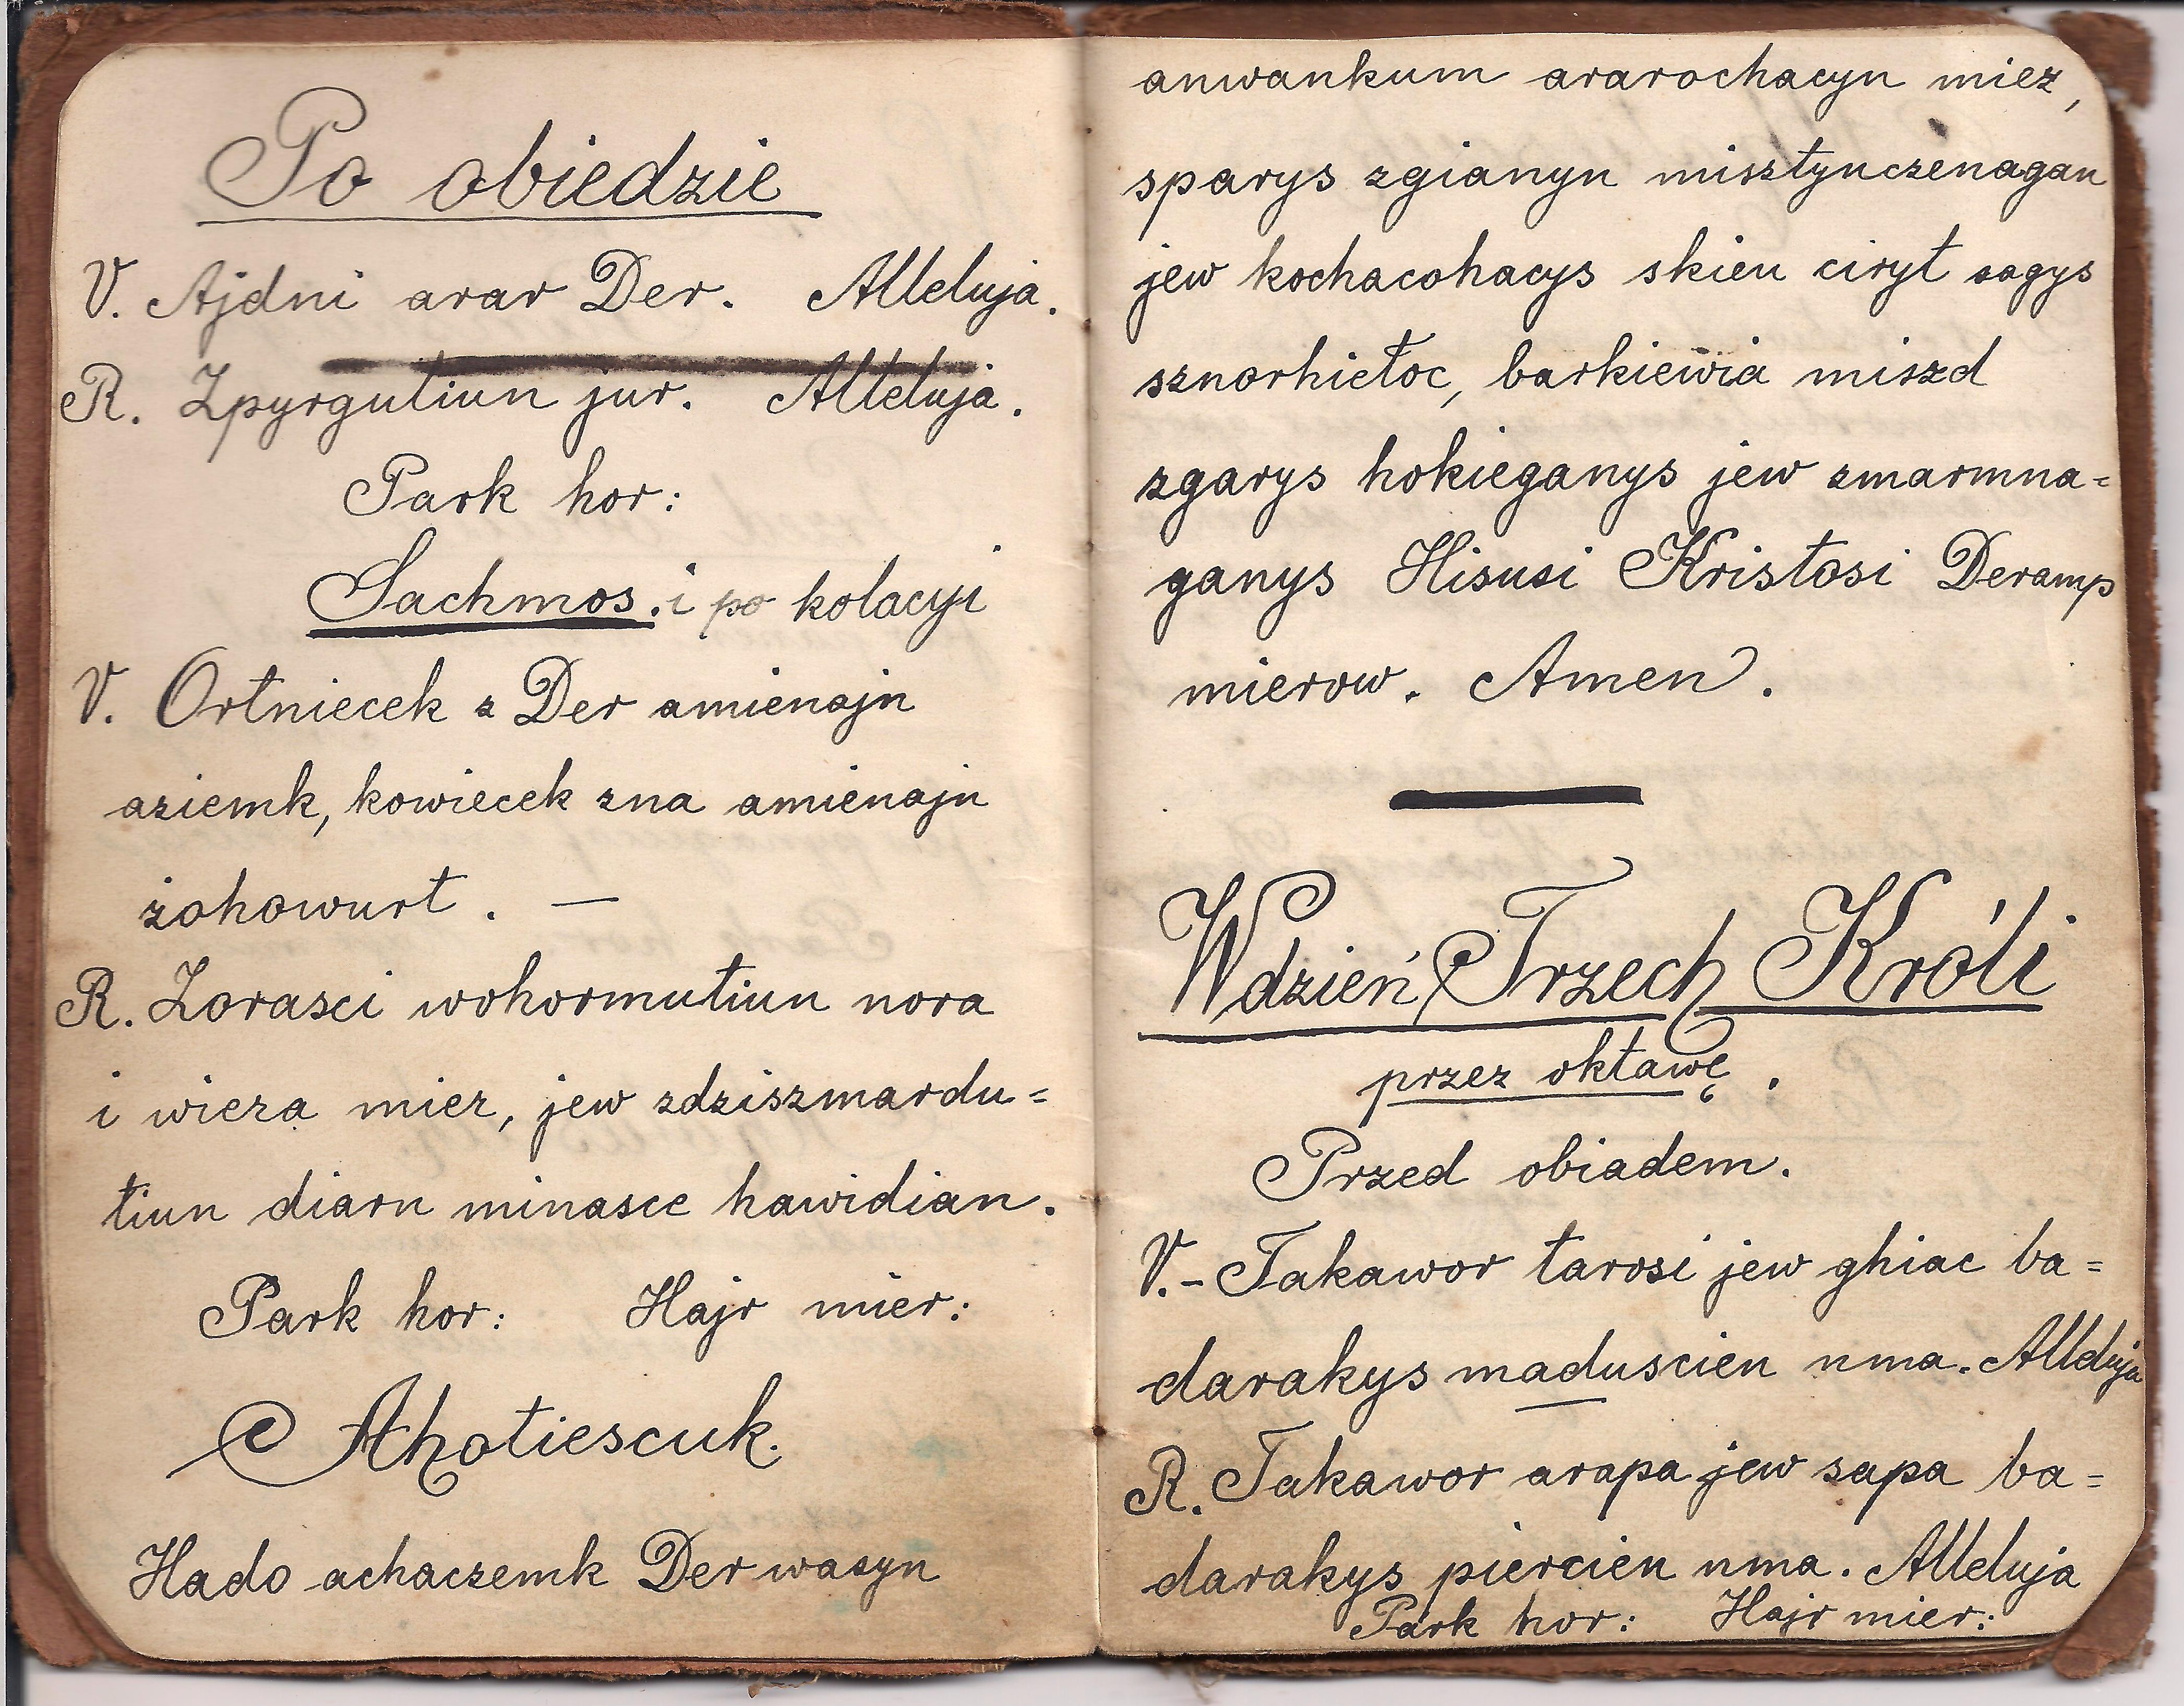 Po obiedzie
V. Ajdni arar Der. Alleluja.
R. Zpyrgutiun jur. Alleluja.
Park hor:
Sachmos. i po kolacyi
V. Ortniecek z Der amienajn
aziemk, kowiecek zna amienajn
żohowurt. —
R. Zorasci wohormutiun nora
i wiera mier, jew zdziszmardu=
tiun diarn minasce hawidian.
Park hor: Hajr mier:
Ahotiescuk.
Hado achaczemk Der wasyn
anwankum ararochacyn miez,
sparys zgianyn misztynczenagan
jew kochacohacys skien ciryt sagys
sznorhiełoc, barkiewia miszd
zgarys hokieganys jew zmarmna=
ganys Hisusi Kristosi Deramp
mierow. Amen.
W dzień Trzech Króli
przez oktawę.
Przed obiadem.
V. - Takawor tarosi jew ghiac ba=
darakys maduscien nma. Alleluja
R. Takawor arapa jew sapa ba=
darakys piercien nma. Alleluja
Park hor: Hajr mier: